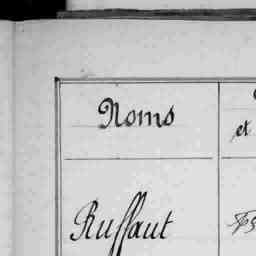 Noms
et
Ruffaut